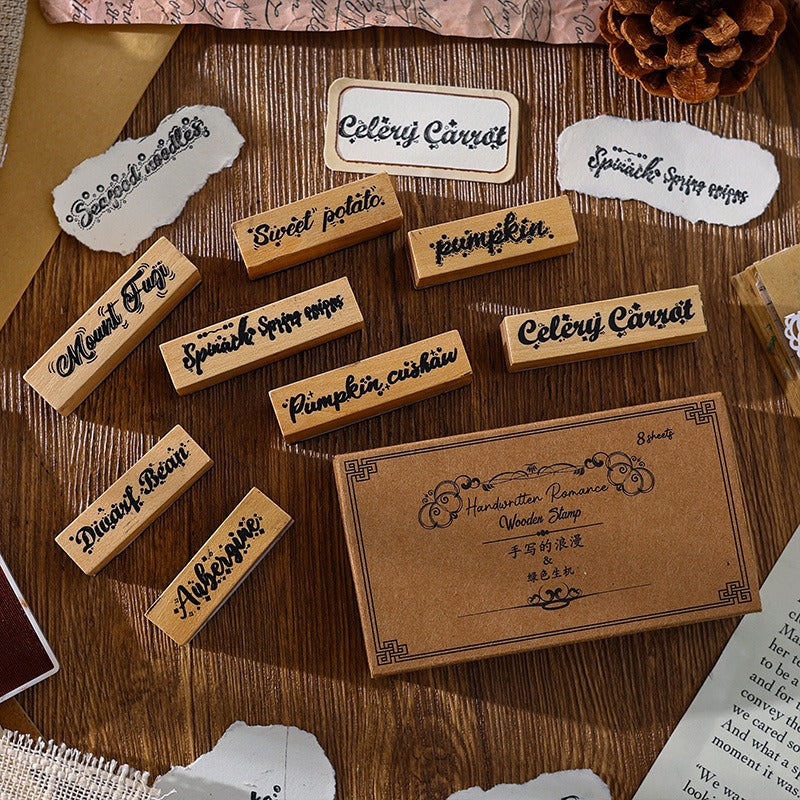 Seafood noodles
Celery Carrot
Spinach Spring onions
Sweet potato
pumpkin
Mount Fugi
Spinach Spring onions
Celery Carrot
Pumpkin cushaw
Dwarf Bean
Aubergine
8 sheets
Handwritten Romance
Wooden Stamp
手写的浪漫
&
绿色生机
to be a
and for
convey
we cared
And what a
moment it
"We